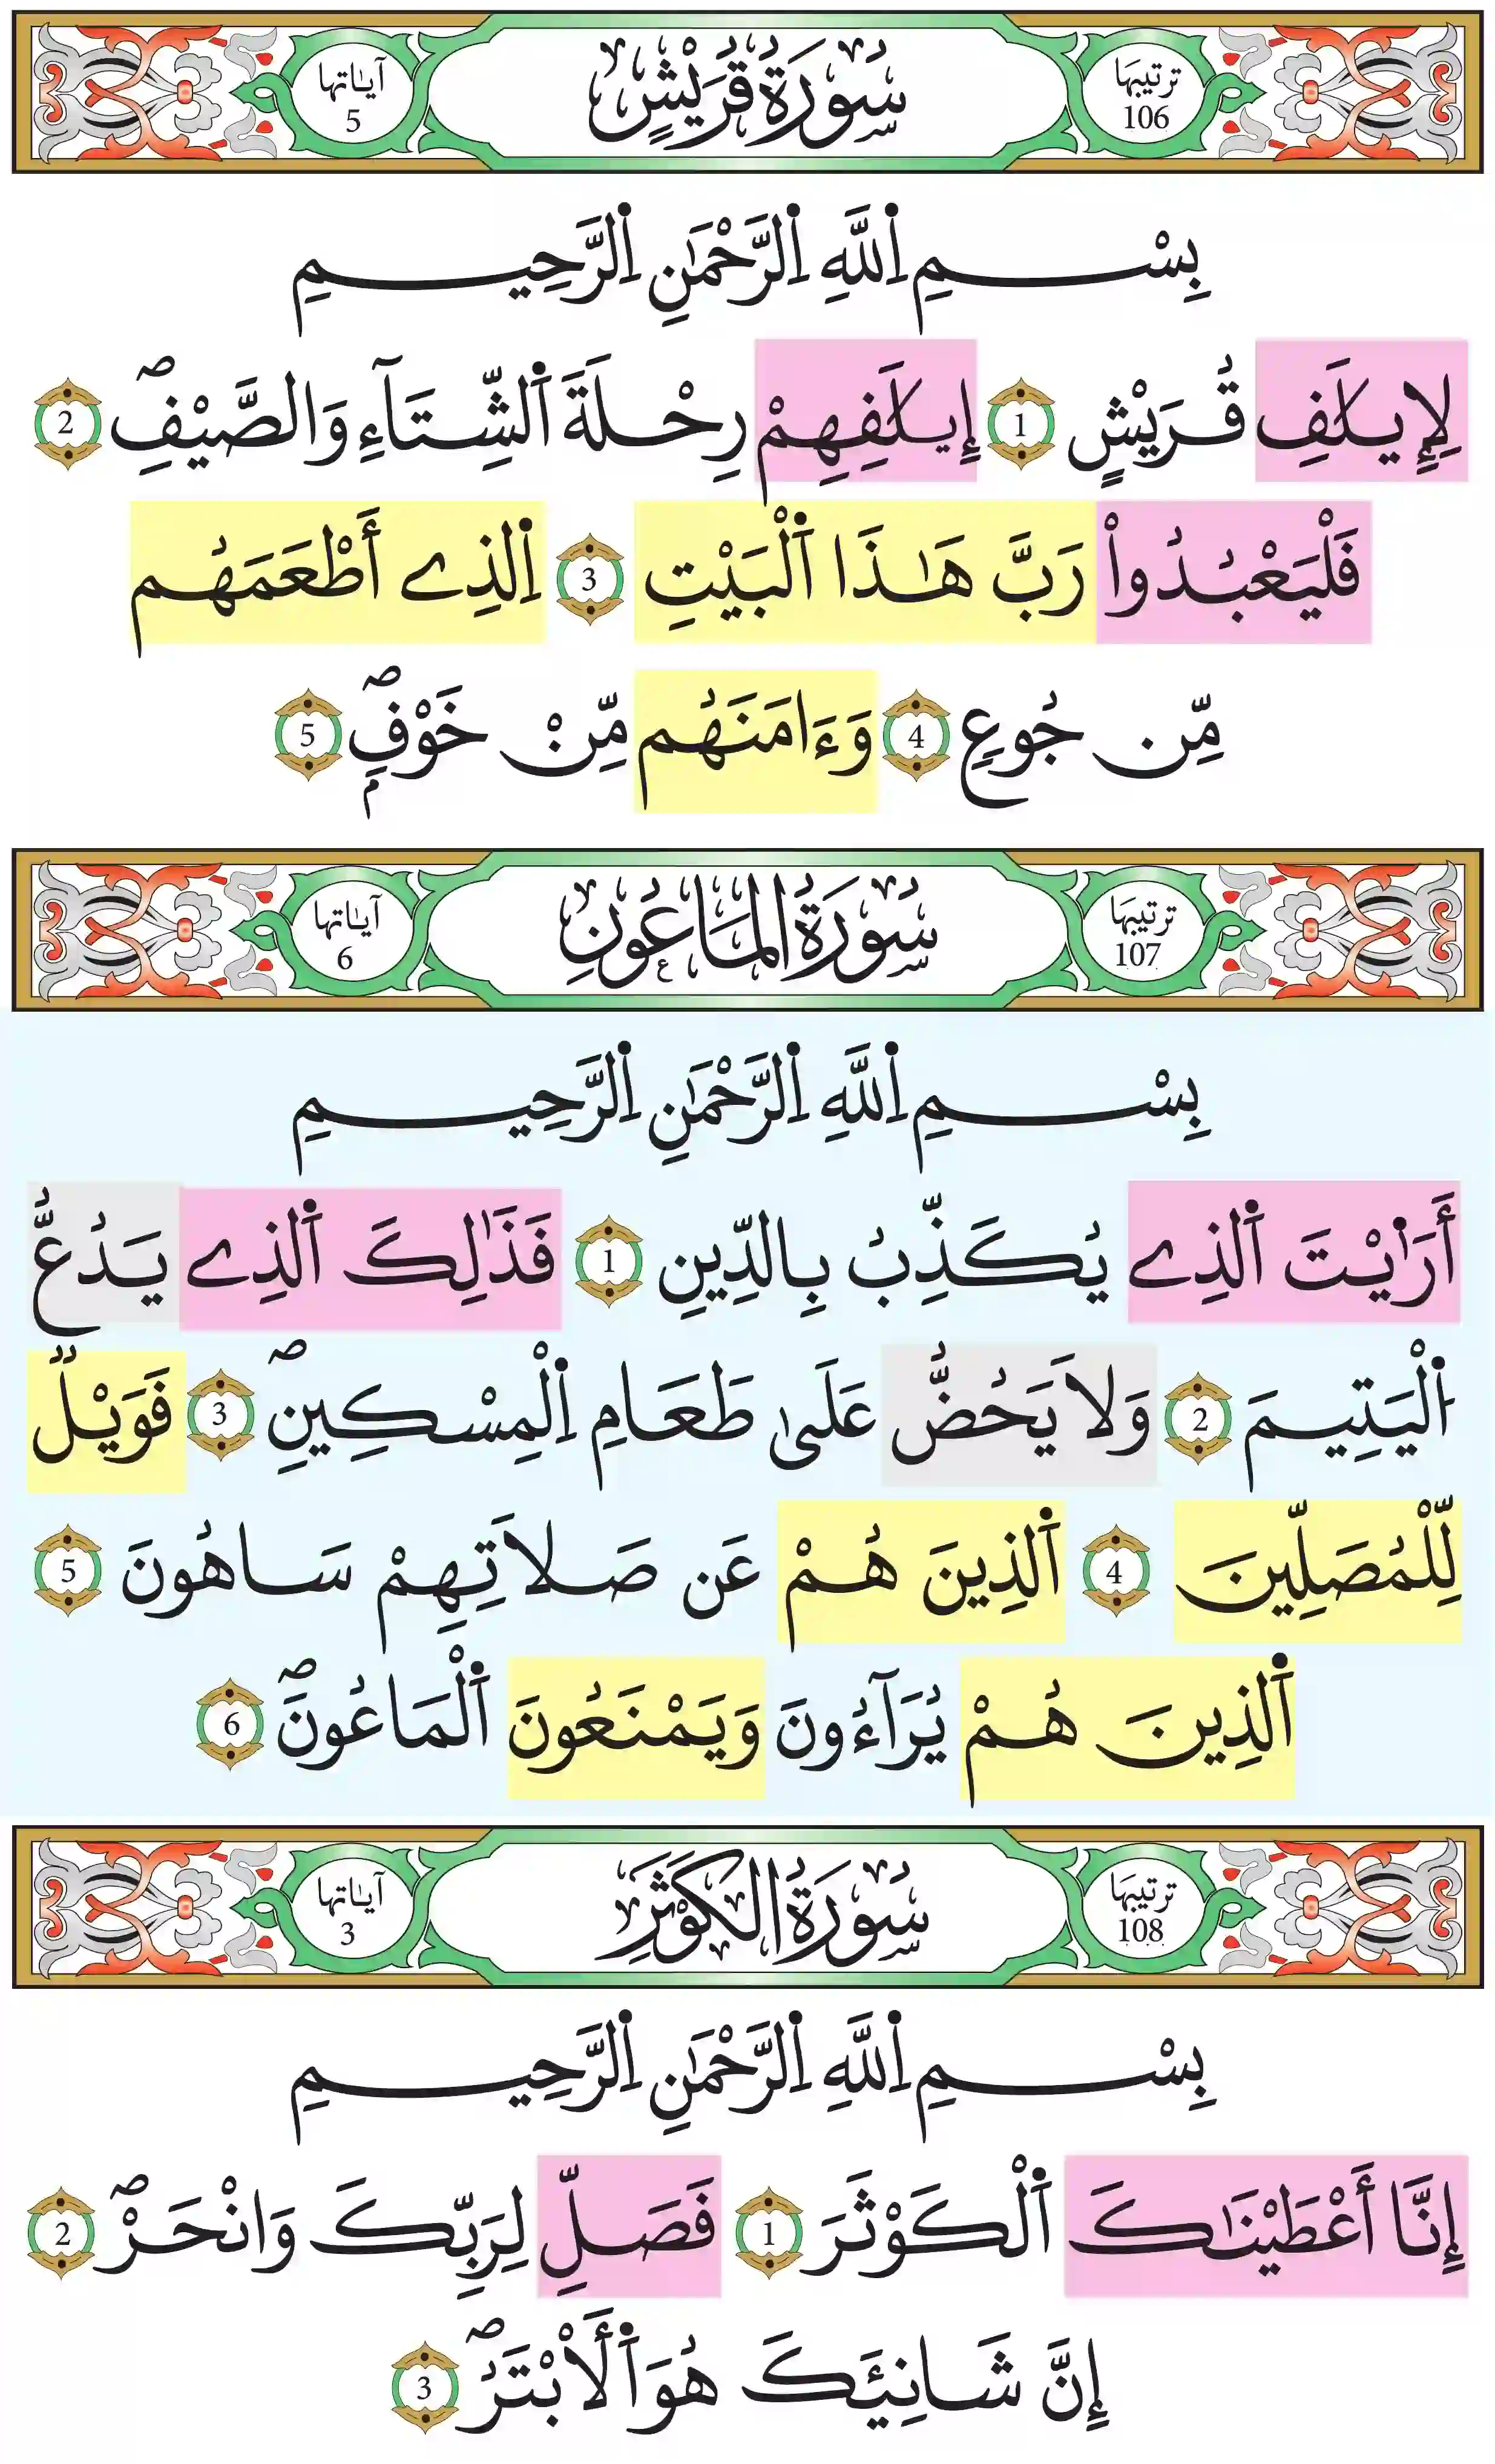 ترتيبها 106 سُورَةُ قُرَيْشٍ آياتها 5
بِسْمِ اِ۬للَّهِ اِ۬لرَّحْمَٰنِ اِ۬لرَّحِيمِ
لِإِيلَٰفِ قُرَيْشٍ 1 إِيلَٰفِهِمْ رِحْلَةَ اَ۬لشِّتَآءِ وَالصَّيْفِۖ 2
فَلْيَعْبُدُواْ رَبَّ هَٰذَا اَ۬لْبَيْتِ 3 اِ۬لذِے أَطْعَمَهُم
مِّن جُوعٍ 4 وَءَامَنَهُم مِّنْ خَوْفٍۢۖ 5
ترتيبها 107 سُورَةُ المَاعُونِ آياتها 6
بِسْمِ اِ۬للَّهِ اِ۬لرَّحْمَٰنِ اِ۬لرَّحِيمِ
أَرَٰيْتَ اَ۬لذِے يُكَذِّبُ بِالدِّينِ 1 فَذَٰلِكَ اَ۬لذِے يَدُعُّ
اُ۬لْيَتِيمَ 2 وَلَا يَحُضُّ عَلَىٰ طَعَامِ اِ۬لْمِسْكِينِۖ 3 فَوَيْلٌ
لِّلْمُصَلِّينَ 4 اَ۬لذِينَ هُمْ عَن صَلَاتِهِمْ سَاهُونَ 5
اَ۬لذِينَ هُمْ يُرَآءُونَ وَيَمْنَعُونَ اَ۬لْمَاعُونَۖ 6
ترتيبها 108 سُورَةُ الكَوْثَرِ آياتها 3
بِسْمِ اِ۬للَّهِ اِ۬لرَّحْمَٰنِ اِ۬لرَّحِيمِ
إِنَّا أَعْطَيْنَٰكَ اَ۬لْكَوْثَرَ 1 فَصَلِّ لِرَبِّكَ وَانْحَرْۖ 2
إِنَّ شَانِئَكَ هُوَ اَ۬لَابْتَرُۖ 3